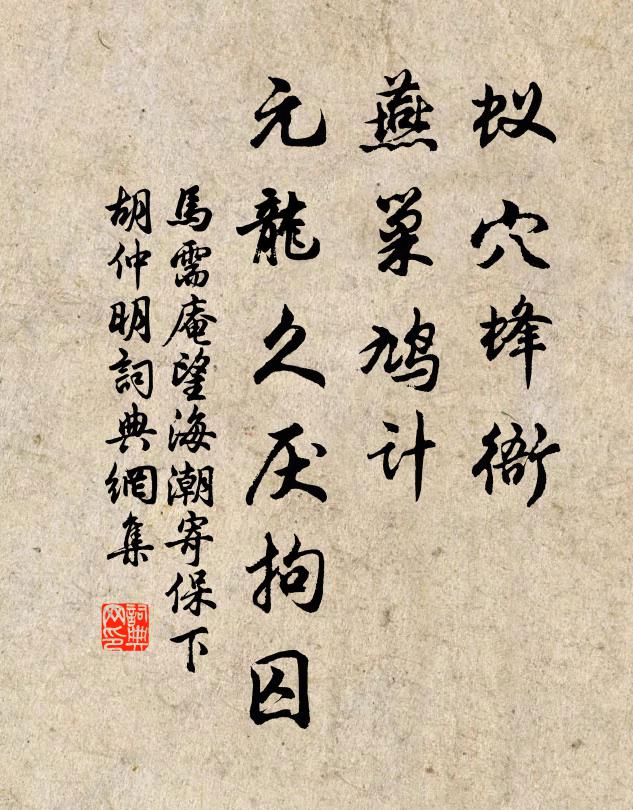 蚁穴蜂衙
燕巢鸠计
元龍久厌拘囚
馬需庵望海潮寄保下
胡仲明詞典網集
詞典网印